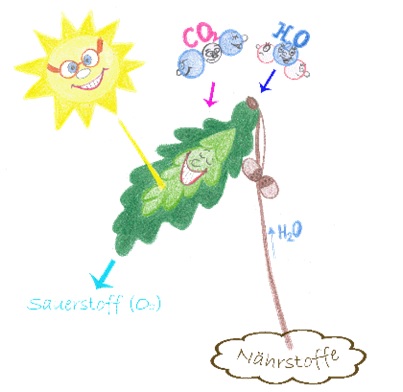 CO₂ H₂O
H₂O
Sauerstoff (O₂)
Nährstoffe